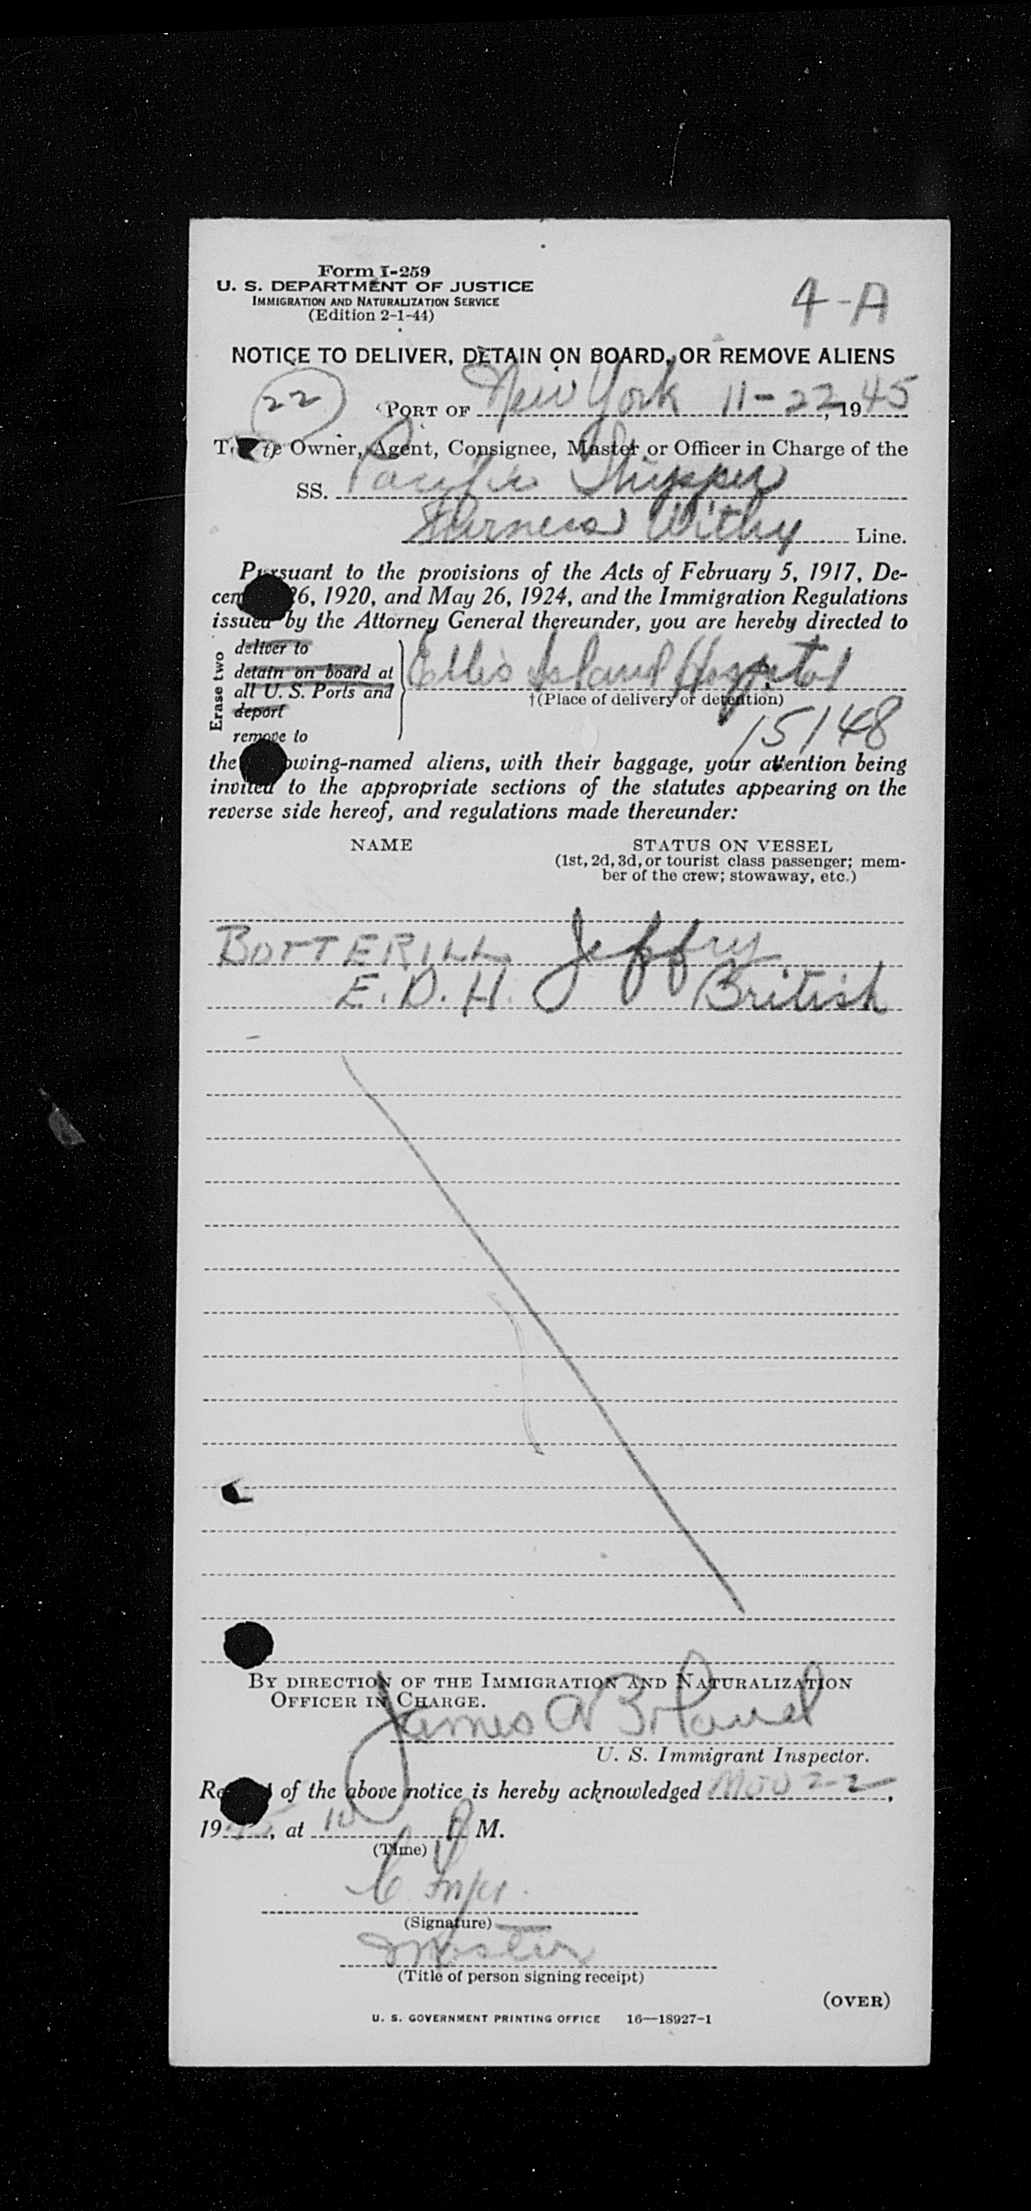 Form I-259
U. S. DEPARTMENT OF JUSTICE
IMMIGRATION AND NATURALIZATION SERVICE
(Edition 2-1-44)
4-A
NOTICE TO DELIVER, DETAIN ON BOARD, OR REMOVE ALIENS
22
PORT OF New York 11-22, 1945
Owner, Agent, Consignee, Master or Officer in Charge of the
SS. Pacific Shipper
Furness Withy Line.
Pursuant to the provisions of the Acts of February 5, 1917, De-
26, 1920, and May 26, 1924, and the Immigration Regulations
issued by the Attorney General thereunder, you are hereby directed to
Erase two
deliver to
detain on board at
all U. S. Ports and
deport
remove to
Ellis Island Hospital
†(Place of delivery or detention)
15148
the owing-named aliens, with their baggage, your attention being
invited to the appropriate sections of the statutes appearing on the
reverse side hereof, and regulations made thereunder:
NAME STATUS ON VESSEL
(1st, 2d, 3d, or tourist class passenger; mem-
ber of the crew; stowaway, etc.)
BOTTERILL Jeffry
E.D.H. British
BY DIRECTION OF THE IMMIGRATION AND NATURALIZATION
OFFICER IN CHARGE.
James A Boland
U. S. Immigrant Inspector.
of the above notice is hereby acknowledged Nov 22,
1945, at 10 M.
(Time)
(Signature)
Master
(Title of person signing receipt)
(OVER)
U. S. GOVERNMENT PRINTING OFFICE 16—18927-1